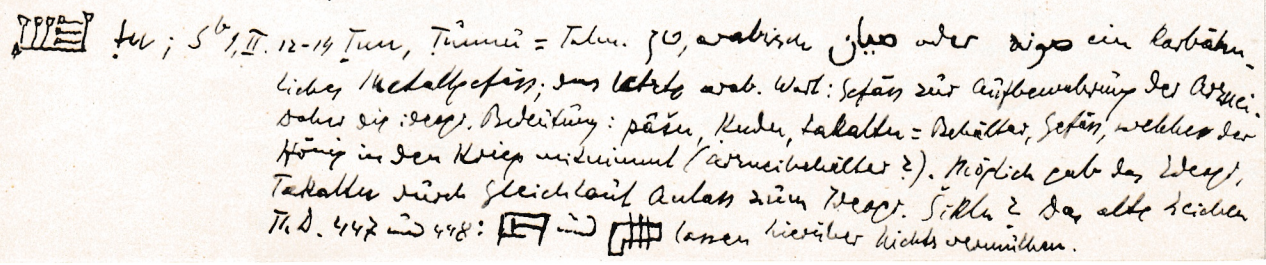 ṭu ; Sᵇ 1, II. 12-14 Ṭun, Ṭunnu = Talm. טס, arabisch صيان oder صوان ein korbähn-
liches Metallgefäss; das letzte arab. Wort: Gefäss zür Aüfbewahrüng der Arznei.
Daher die ideogr. Bedeütüng: pâšu, Kudu, takaltu = Behälter, Gefäss, welches der
König in den Krieg mitnimmt (Arzneibehälter?). Möglich gab das Ideogr.
Takaltu dürch Gleichlaüt Anlass züm Ideogr. Šiklu? Das alte Zeichen
Th.D. 447 ünd 448: ünd lassen hierüber nichts vermüthen.